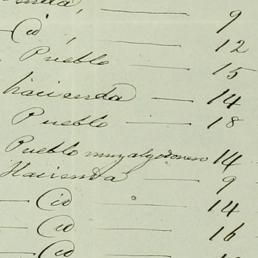 9
Cid, — 12
Pueblo — 15
hacienda — 14
Pueblo — 18
Pueblo muy algodonero 14
Hacienda — 9
— Cid — 14
— Cid — 16
— Cid